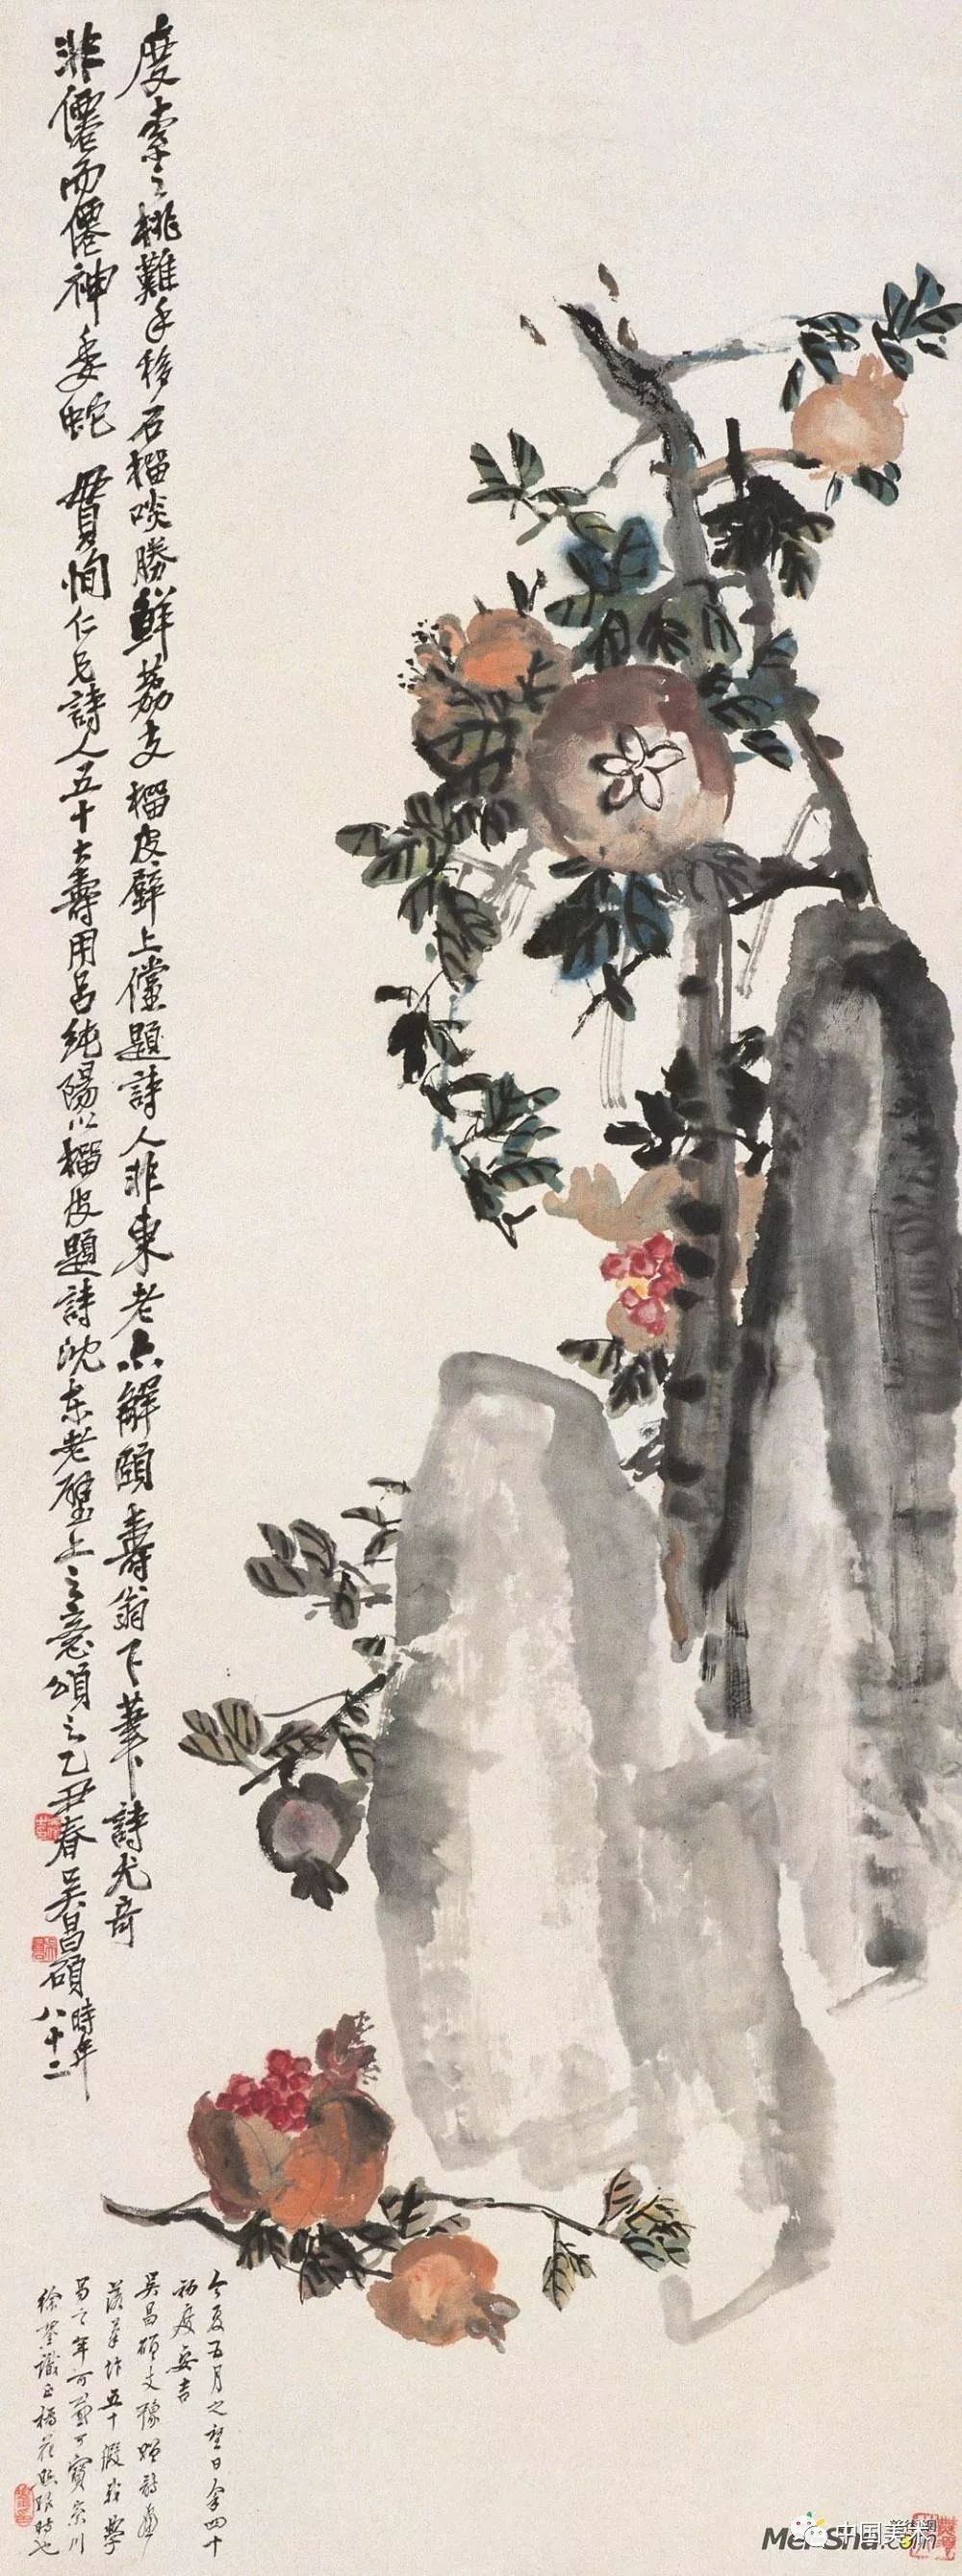 度索之桃難手移石榴啖勝鮮荔支榴皮壁上儻題詩人非東老亦解頤壽翁下筆詩尤奇
非僊而僊神委蛇貫恂仁兄詩人五十大壽用呂純陽以榴皮題詩沈東老壁上之意頌之乙丑春吳昌碩時年
八十二
今夏五月之望日余四十
初度安吉
吳昌碩丈豫贈詩畫
落筆作五十假我學
易之年可感可寶崇川
徐鋆識正榴花照眼時也
中国美术
Mei-Shu.com